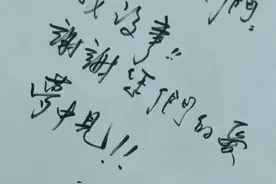 我沒事!!
謝謝你們的愛
夢中見!!!